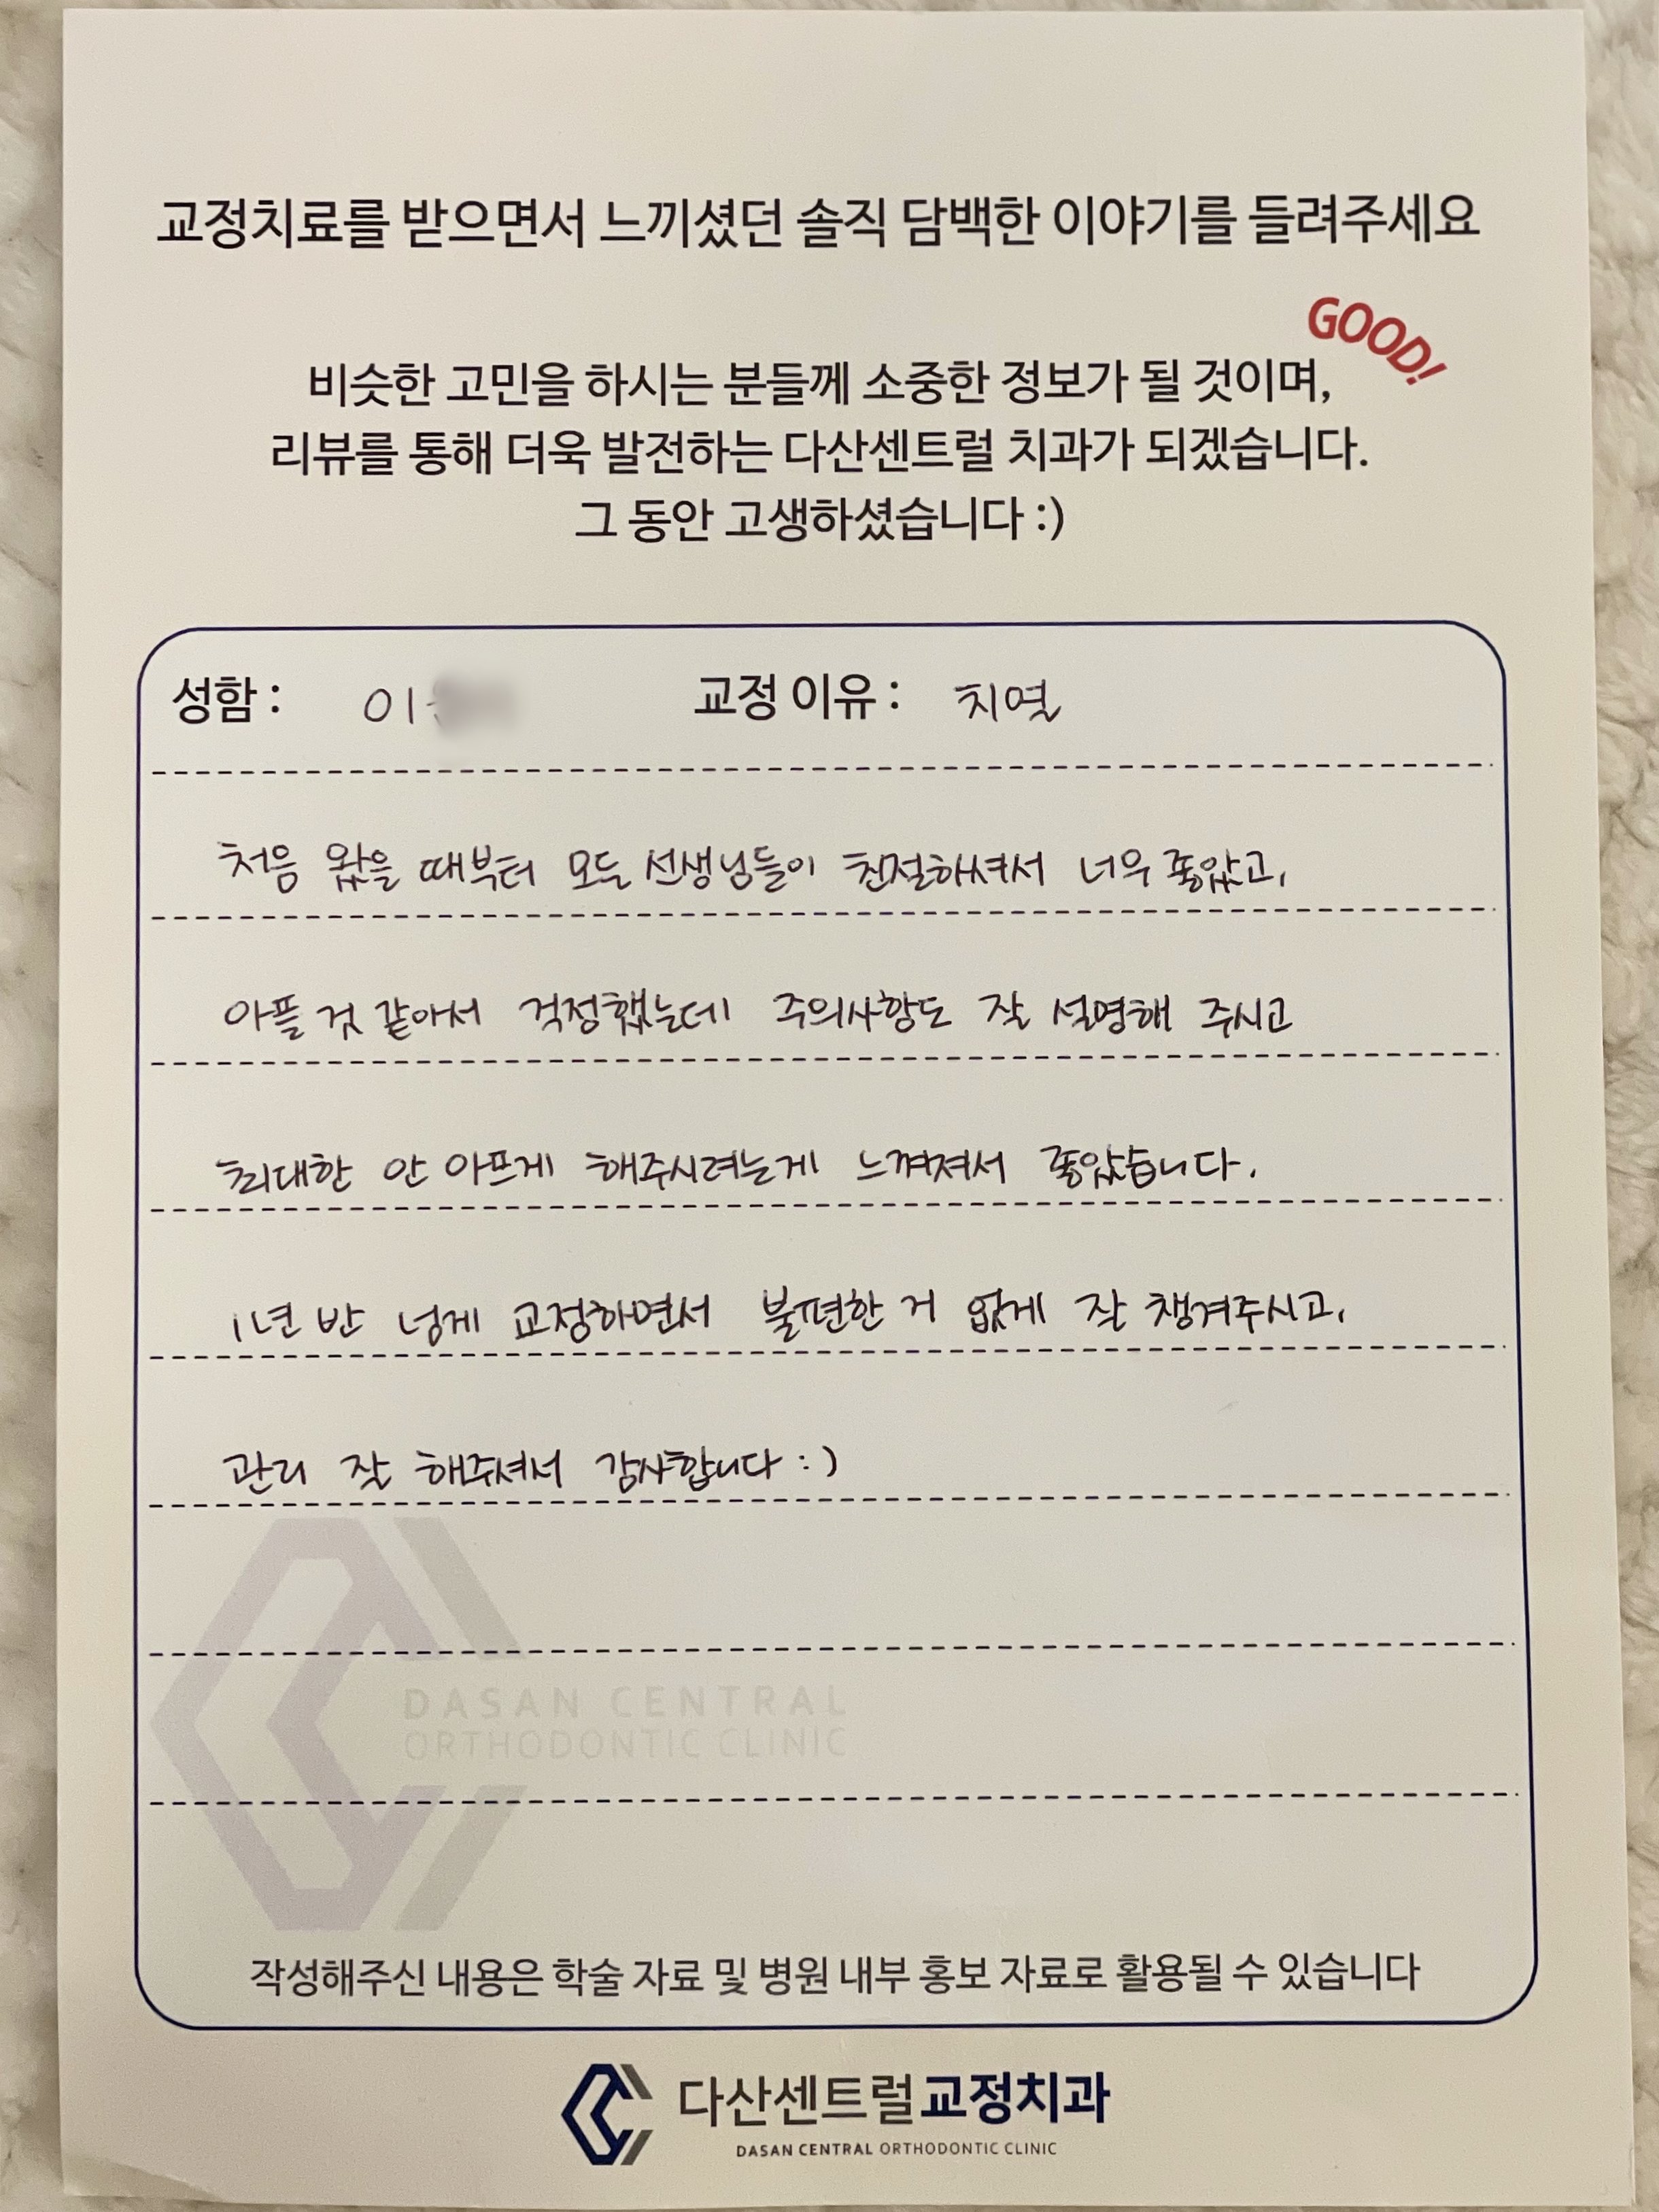 교정치료를 받으면서 느끼셨던 솔직 담백한 이야기를 들려주세요
GOOD!
비슷한 고민을 하시는 분들께 소중한 정보가 될 것이며,
리뷰를 통해 더욱 발전하는 다산센트럴 치과가 되겠습니다.
그 동안 고생하셨습니다 :)
성함 : 이 교정 이유 : 치열
처음 왔을 때부터 모든 선생님들이 친절하셔서 너무 좋았고,
아플 것 같아서 걱정했는데 주의사항도 잘 설명해 주시고
최대한 안 아프게 해주시려는게 느껴져서 좋았습니다.
1년 반 넘게 교정하면서 불편한 거 없게 잘 챙겨주시고,
관리 잘 해주셔서 감사합니다 :)
DASAN CENTRAL
ORTHODONTIC CLINIC
작성해주신 내용은 학술 자료 및 병원 내부 홍보 자료로 활용될 수 있습니다
다산센트럴교정치과
DASAN CENTRAL ORTHODONTIC CLINIC